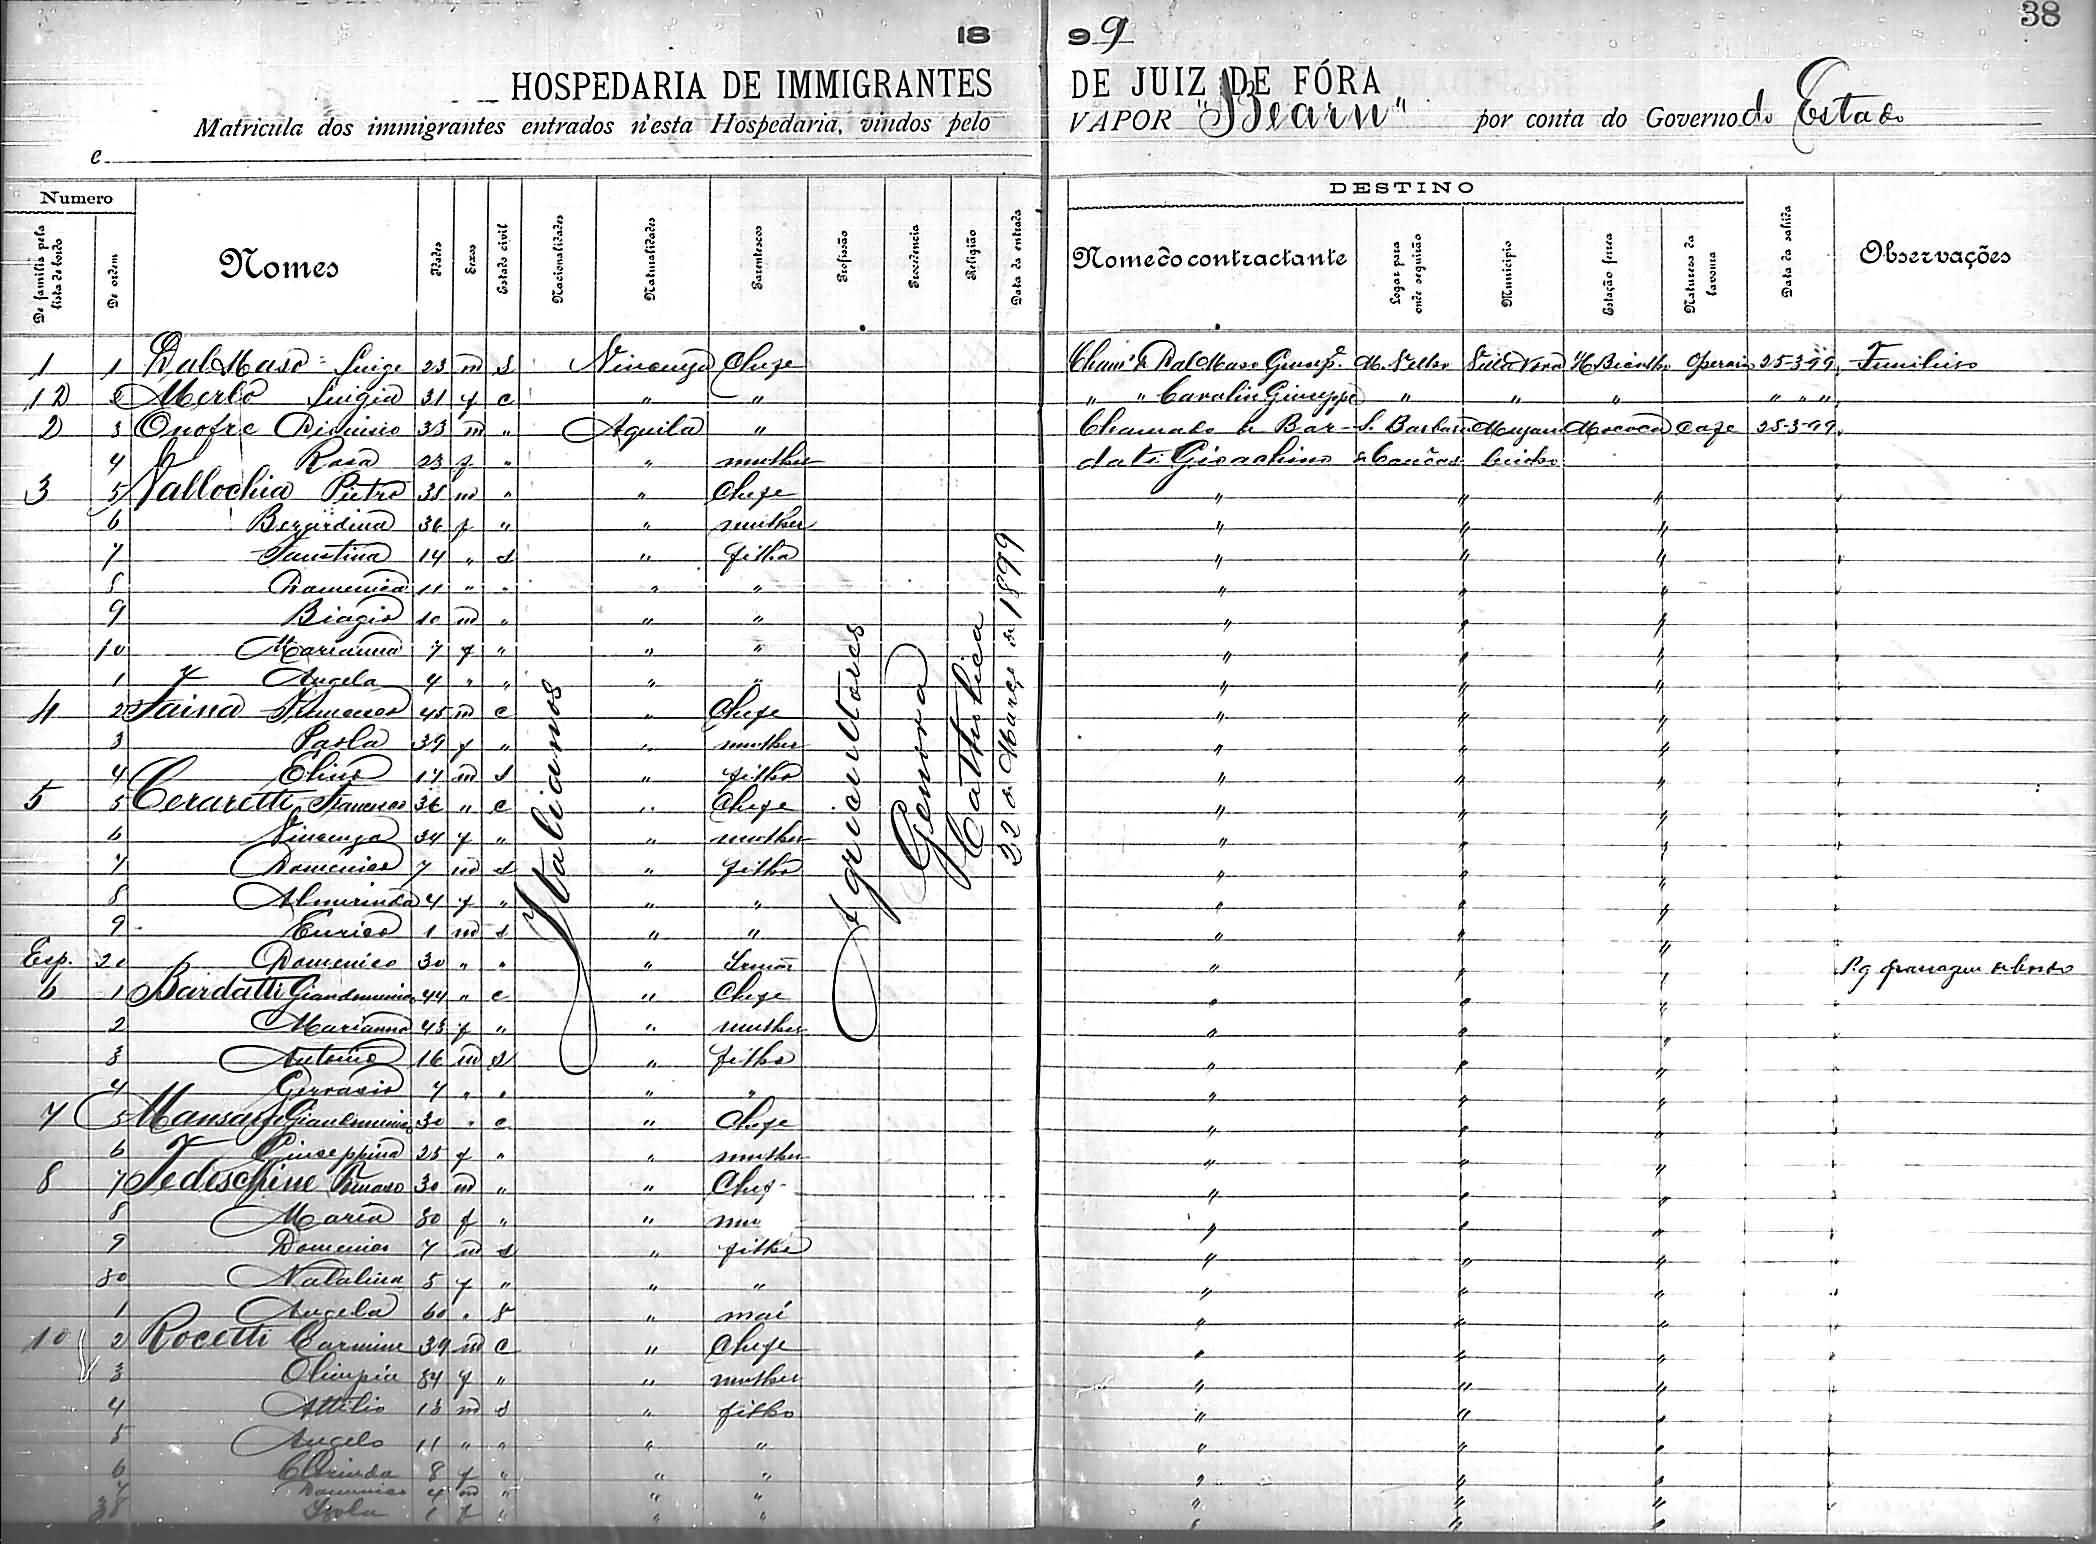 38
18 99
HOSPEDARIA DE IMMIGRANTES DE JUIZ DE FÓRA
Matricula dos immigrantes entrados n'esta Hospedaria, vindos pelo VAPOR "Bearn" por conta do Governo do Estado
e
Numero DESTINO
De familia pela lista de bordo De ordem Nomes Idades Sexos Estado civil Nacionalidades Naturalidades Parentescos Profissão Procedencia Religião Data da entrada Nome do contractante Logar para onde seguirão Municipio Estação ferrea Natureza da lavoura Data da sahida Observações
1 1 Dal Maso Luige 23 m s Vincenza Chefe Cham° de Dal Maso Giusep.e 25-3-99
12 2 Merlo Luigia 31 f c " " " " Carolin Giuseppe " " " " " "
2 3 Onofre 33 m " Aquila " Chamado de Bar- S. Barbara Mococa Cafe 25-3-99
4 Rosa 23 f " " mulher dati Gioachino
3 5 Vallochia Pietro 38 m " " Chefe " " "
6 Berardina 36 f " " mulher " " "
7 Faustina 14 " s " filha " " "
8 Domenica 11 " " " " " " "
9 Biagio 10 m " " " " " "
10 Marianna 7 f " " " " " "
1 Angela 4 " " " " " " "
4 2 Faina Francesco 45 m c " Chefe " " "
3 Paola 39 f " " mulher " " "
4 17 m s " filho " " "
5 5 Ceraretti Francesco 36 " c " Chefe " " "
6 Vincenza 34 f " " mulher " " "
7 Domenico 7 m s " filho " " "
8 Almerinda 4 f " " " " " "
9 Enrico 1 m s " " " " "
Esp. 20 Domenico 30 " " " Irmão " " " Pg passagem de bordo
6 1 Bardatti Giandomenico 44 " c " Chefe " " "
2 Marianna 43 f " " mulher " " "
3 Antonio 16 m s " filho " " "
4 Gervasio 7 " " " " " " "
7 5 Giandomenico 30 " c " Chefe " " "
6 Giuseppina 25 f " " mulher " " "
8 7 Tedeschine Tomaso 30 m " " Chef " " "
8 Maria 30 f " " mu " " "
9 Domenico 7 m s " filho " " "
30 Natalina 5 f " " " " " "
1 Angela 60 " " mai " " "
10 2 Rocetti Carmine 39 m c " Chefe " " "
3 Olimpia 34 f " " mulher " " "
4 Attilio 13 m s " filho " " "
5 Angelo 11 " " " " " " "
6 Clorinda 8 f " " " " " "
7 Domenico 4 m " " " " " "
38 1 f " " " " " "
Italianos
Agricultores
Genova
Catholica
22 de Março de 1899